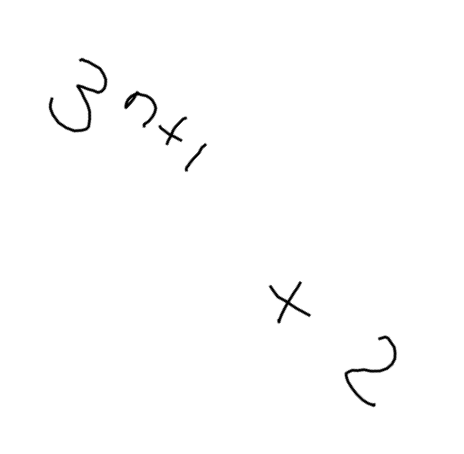 3ⁿ⁺¹ + 2